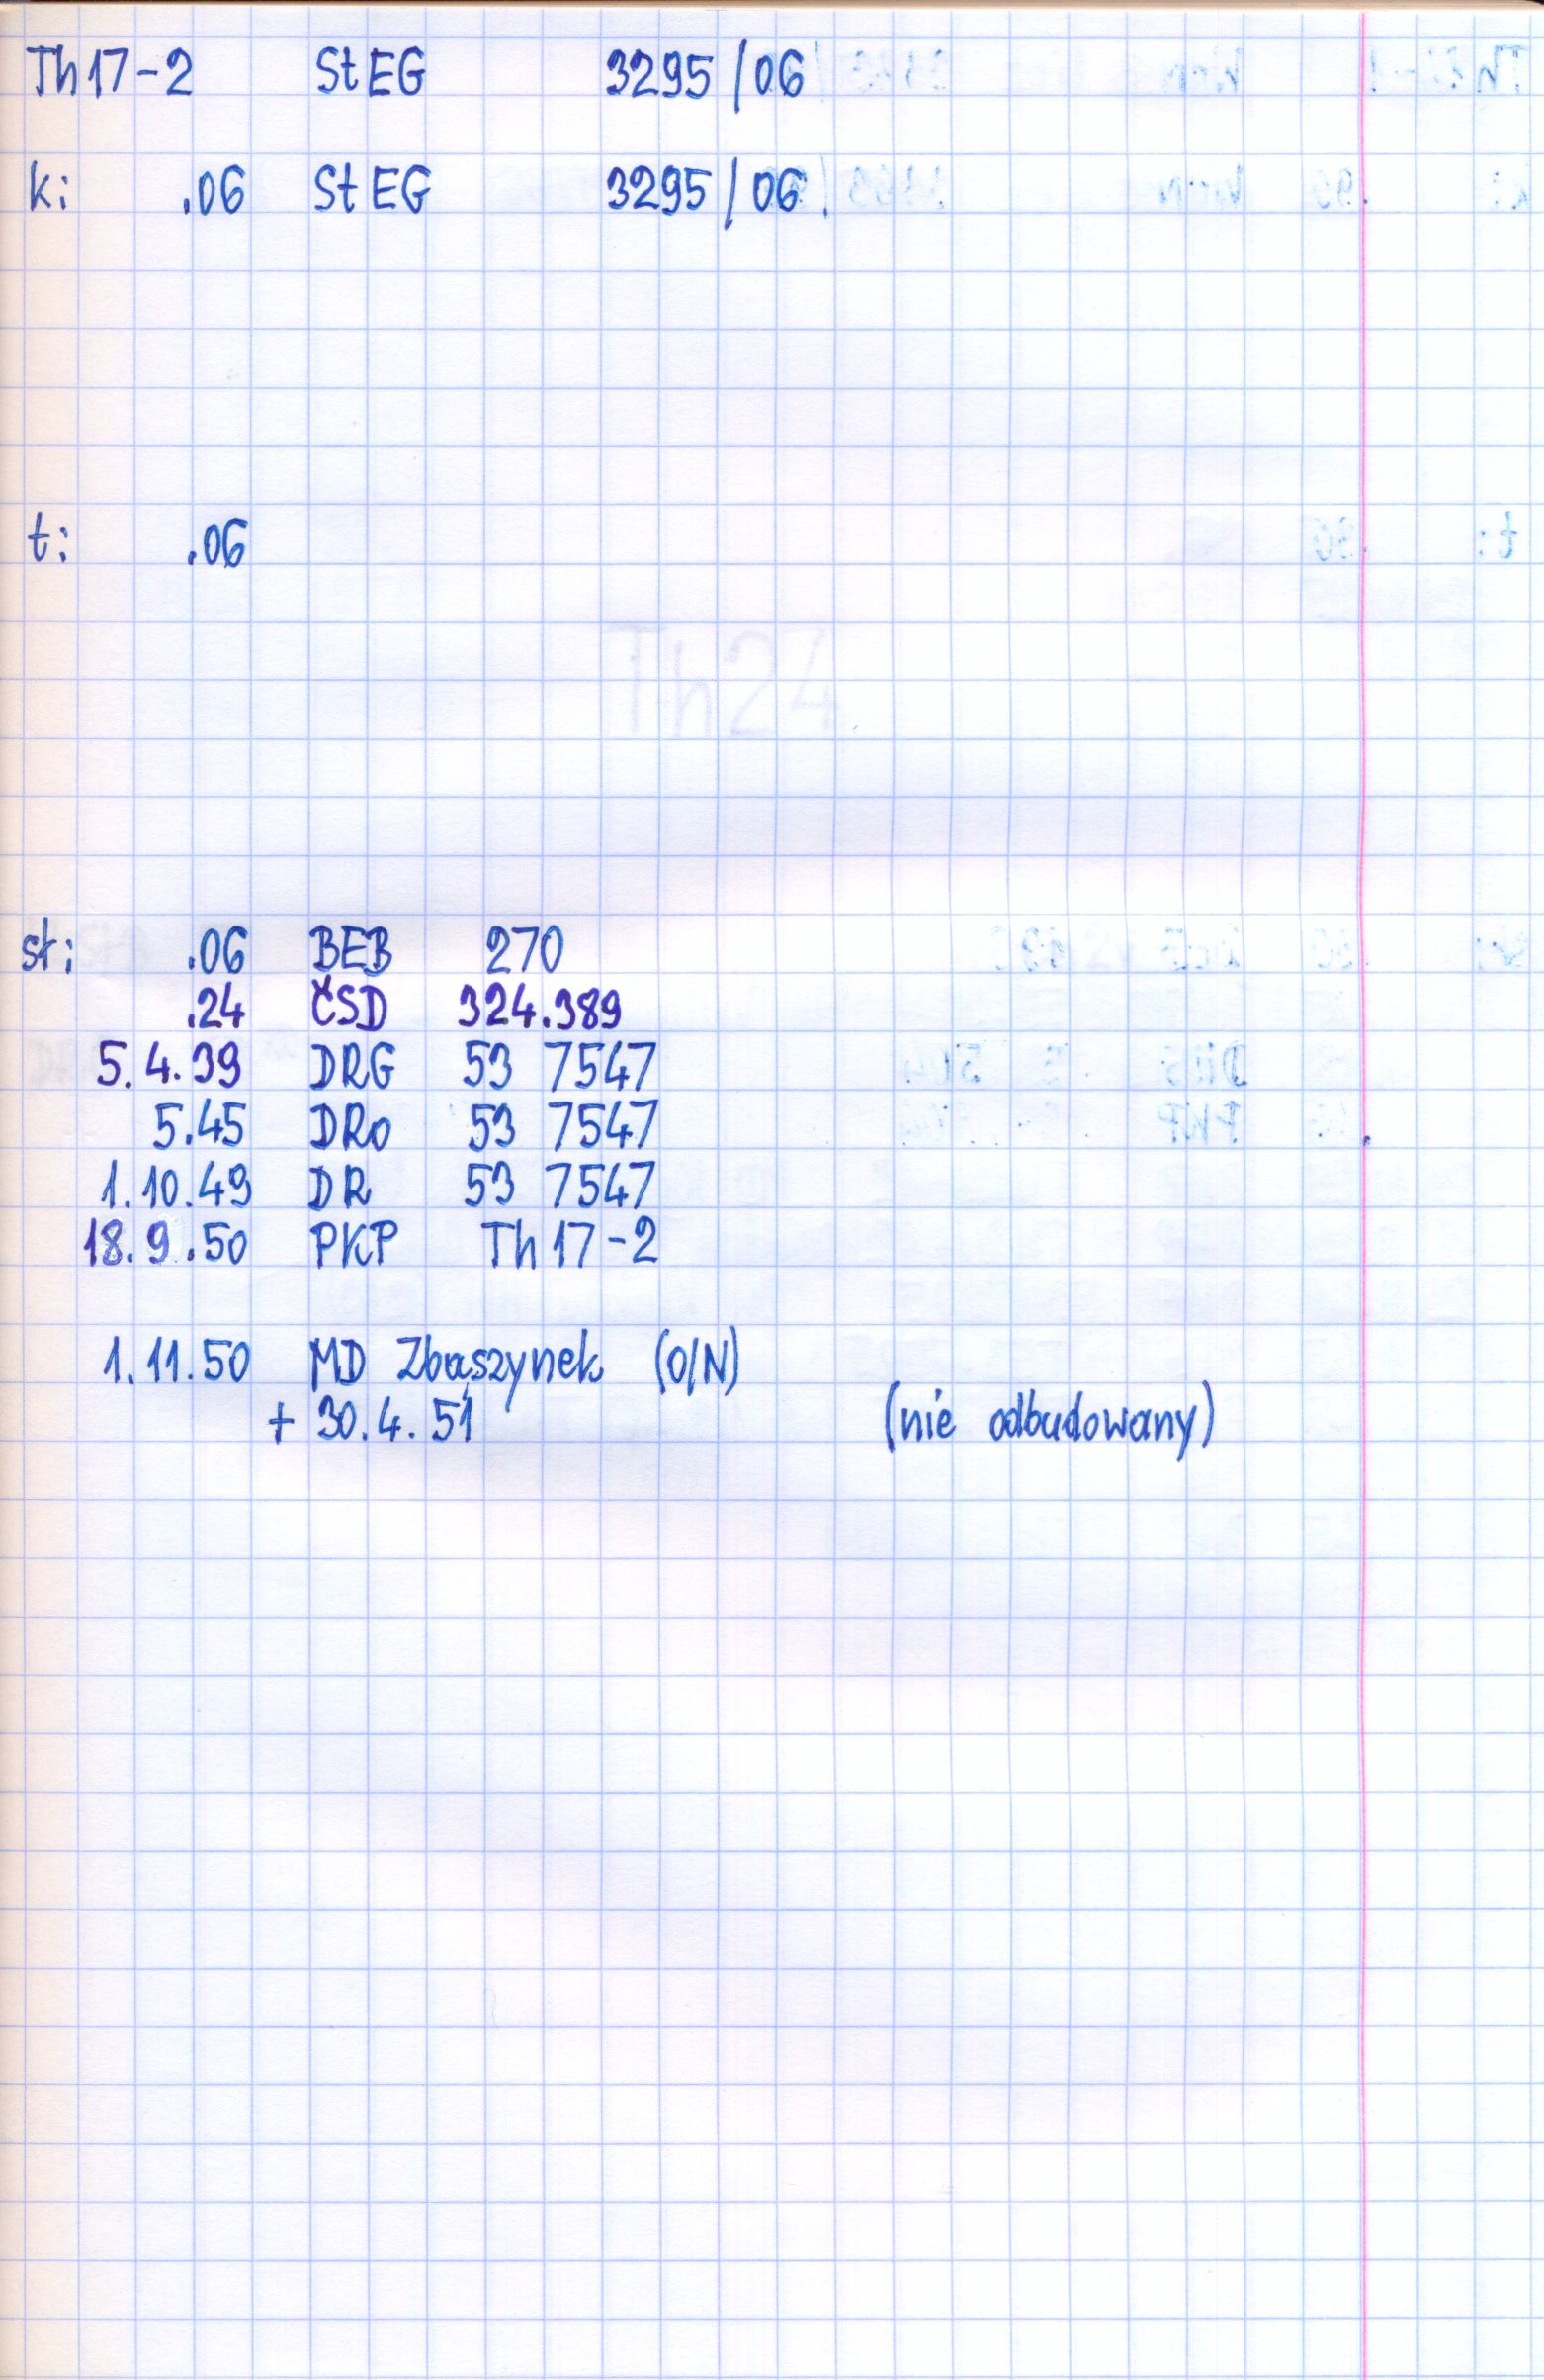 Th17-2 StEG 3295/06
k: .06 StEG 3295/06
t: .06
Th24
st: .06 BEB 270
.24 ČSD 324.389
5.4.39 DRG 53 7547
5.45 DRo 53 7547
1.10.49 DR 53 7547
18.9.50 PKP Th17-2
1.11.50 MD Zbąszynek (O/N)
+ 30.4.51 (nie odbudowany)